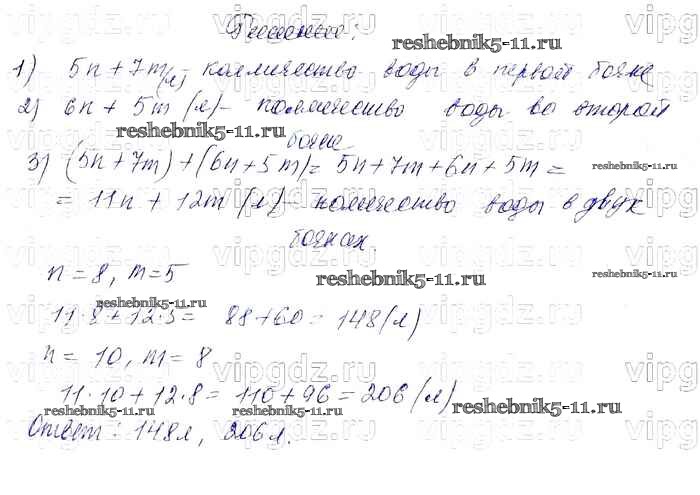 Решение:
1) 5n + 7m (л) - количество воды в первой бочке
2) 6n + 5m (л) - количество воды во второй
бочке
3) (5n + 7m) + (6n + 5m) = 5n + 7m + 6n + 5m =
= 11n + 12m (л) - количество воды в двух
бочках.
n = 8, m = 5
11·8 + 12·5 = 88 + 60 = 148 (л)
n = 10, m = 8
11·10 + 12·8 = 110 + 96 = 206 (л)
Ответ: 148 л, 206 л.
reshebnik5-11.ru
reshebnik5-11.ru
reshebnik5-11.ru
reshebnik5-11.ru
reshebnik5-11.ru
reshebnik5-11.ru
reshebnik5-11.ru
reshebnik5-11.ru
reshebnik5-11.ru
reshebnik5-11.ru
vipgdz.ru